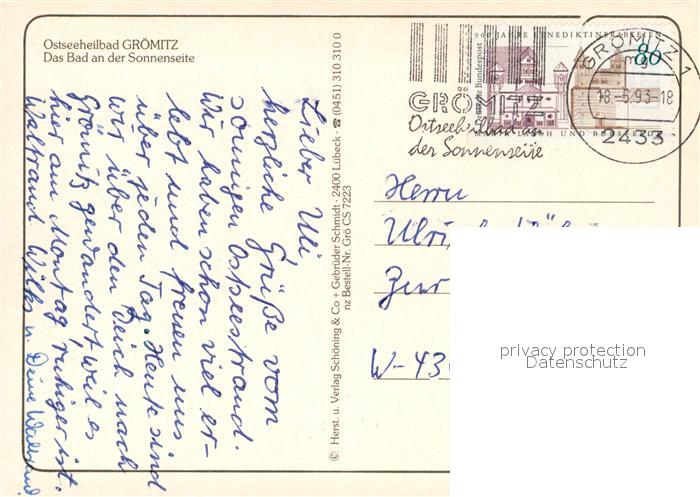 Ostseeheilbad GRÖMITZ
Das Bad an der Sonnenseite
Lieber Uli,
herzliche Grüße vom
sonnigen Ostseestrand.
Wir haben schon viel er-
lebt und freuen uns
über jeden Tag. Heute sind
wir über den Deich nach
Grömitz gewandert, weil es
hier am Montag ruhiger ist.
Waltraud Wilks u. Deine Waltraud
© Herst. u. Verlag Schöning & Co + Gebrüder Schmidt · 2400 Lübeck · ☎ (0451) 310 310 0
nz Bestell-Nr. Grö CS 7223
900 JAHRE BENEDIKTINERABTEIEN
Deutsche Bundespost
80
MARIA LAACH UND BURSFELDE
GRÖMITZ
Ostseeheilbad an
der Sonnenseite
GRÖMITZ 1
mg
18.-6.93-18
2433
Herrn
Zur
W-43
privacy protection
Datenschutz